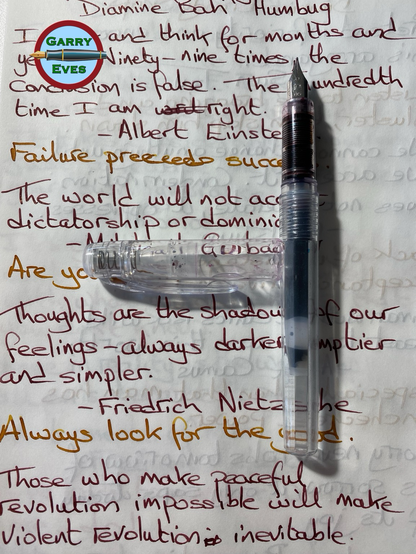 Diamine Bah Humbug
GARRY
EVES
I and think for months and
Ninety-nine times the
conclusion is false. The hundredth
time I am right.
Albert Einste
Failure preceeds succe
The world will not acc
dictatorship or domini
- M Gorba
Are yo
Thoughts are the shadow of our
feelings - always darker, mptier
and simpler.
- Friedrich Nietzs he
Always look for the g d.
Those who make peaceful
revolution impossible will make
violent revolution inevitable.